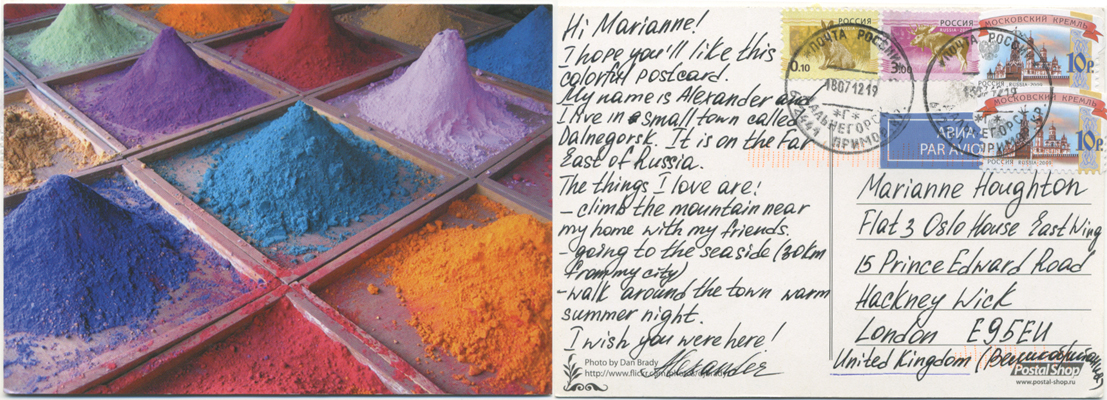 Hi Marianne!
I hope you'll like this
colorful postcard.
My name is Alexander and
I live in a small town called
Dalnegorsk. It is on the Far
East of Russia.
The things I love are:
- climb the mountain near
my home with my friends.
- going to the seaside (30km
from my city)
- walk around the town warm
summer night.
I wish you were here!
Alexander
Photo by Dan Brady
http://www.flickr.com/photos/
РОССИЯ
0.10
РОССИЯ
3.00
МОСКОВСКИЙ КРЕМЛЬ
10р.
РОССИЯ RUSSIA 2009
МОСКОВСКИЙ КРЕМЛЬ
10р.
РОССИЯ RUSSIA 2009
ПОЧТА РОССИИ
18071219
ДАЛЬНЕГОРСК
ПРИМОР
*Г*
ПОЧТА РОССИИ
*Г*
ПРИМОР
АВИА
PAR AVION
Marianne Houghton
Flat 3 Oslo House East Wing
15 Prince Edward Road
Hackney Wick
London E95EU
United Kingdom (Великобритания)
PostalShop
www.postal-shop.ru